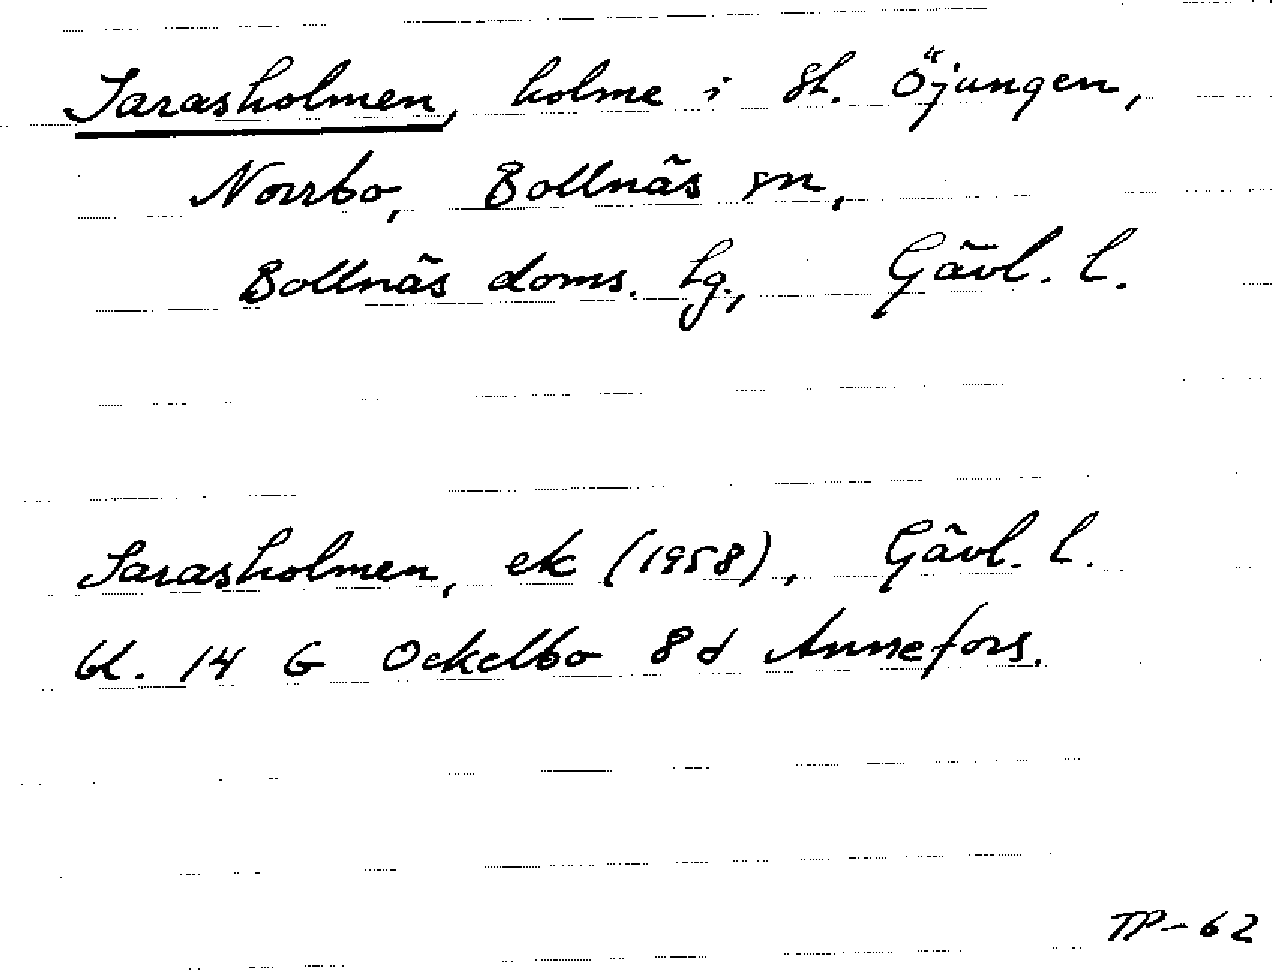 Sarasholmen, holme i st. Öjungen,
Norrbo, Bollnäs sn,
Bollnäs doms. lg, Gävl. l.
Sarasholmen, ek (1958), Gävl. l.
bl. 14 G Ockelbo 8d Annefors.
TP-62